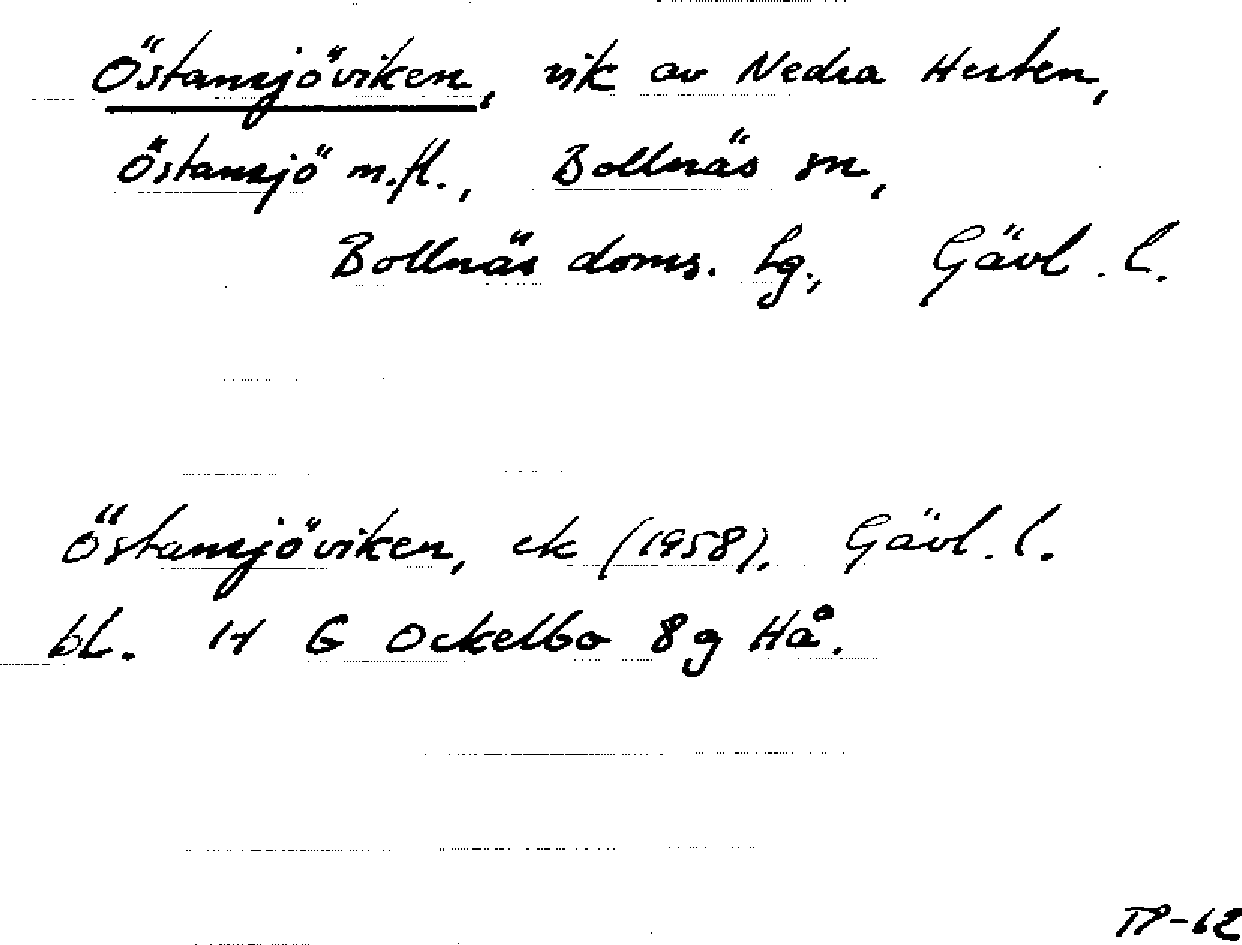 Östansjöviken, vik av Nedra Herten,
Östansjö m.fl., Bollnäs sn,
Bollnäs doms. lg., Gävl. l.
Östansjöviken, ek (1958). Gävl. l.
bl. 14 G Ockelbo 8g Hå.
TP-62